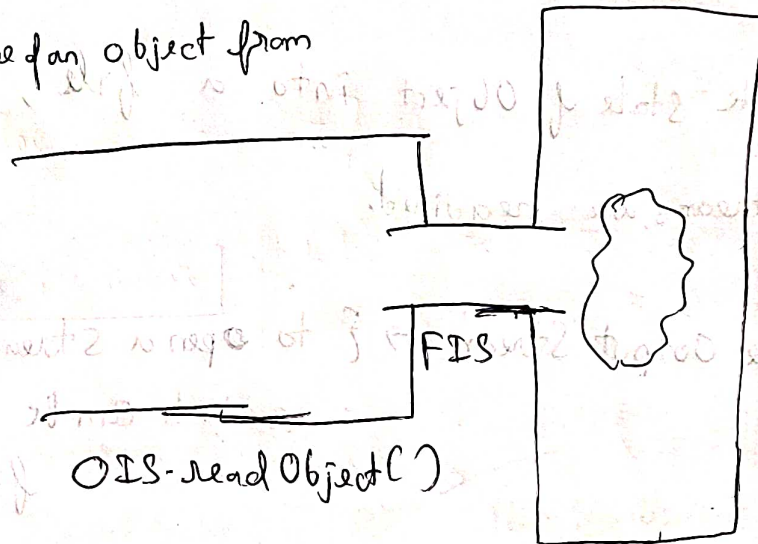 of an object from
FIS
OIS-readObject()